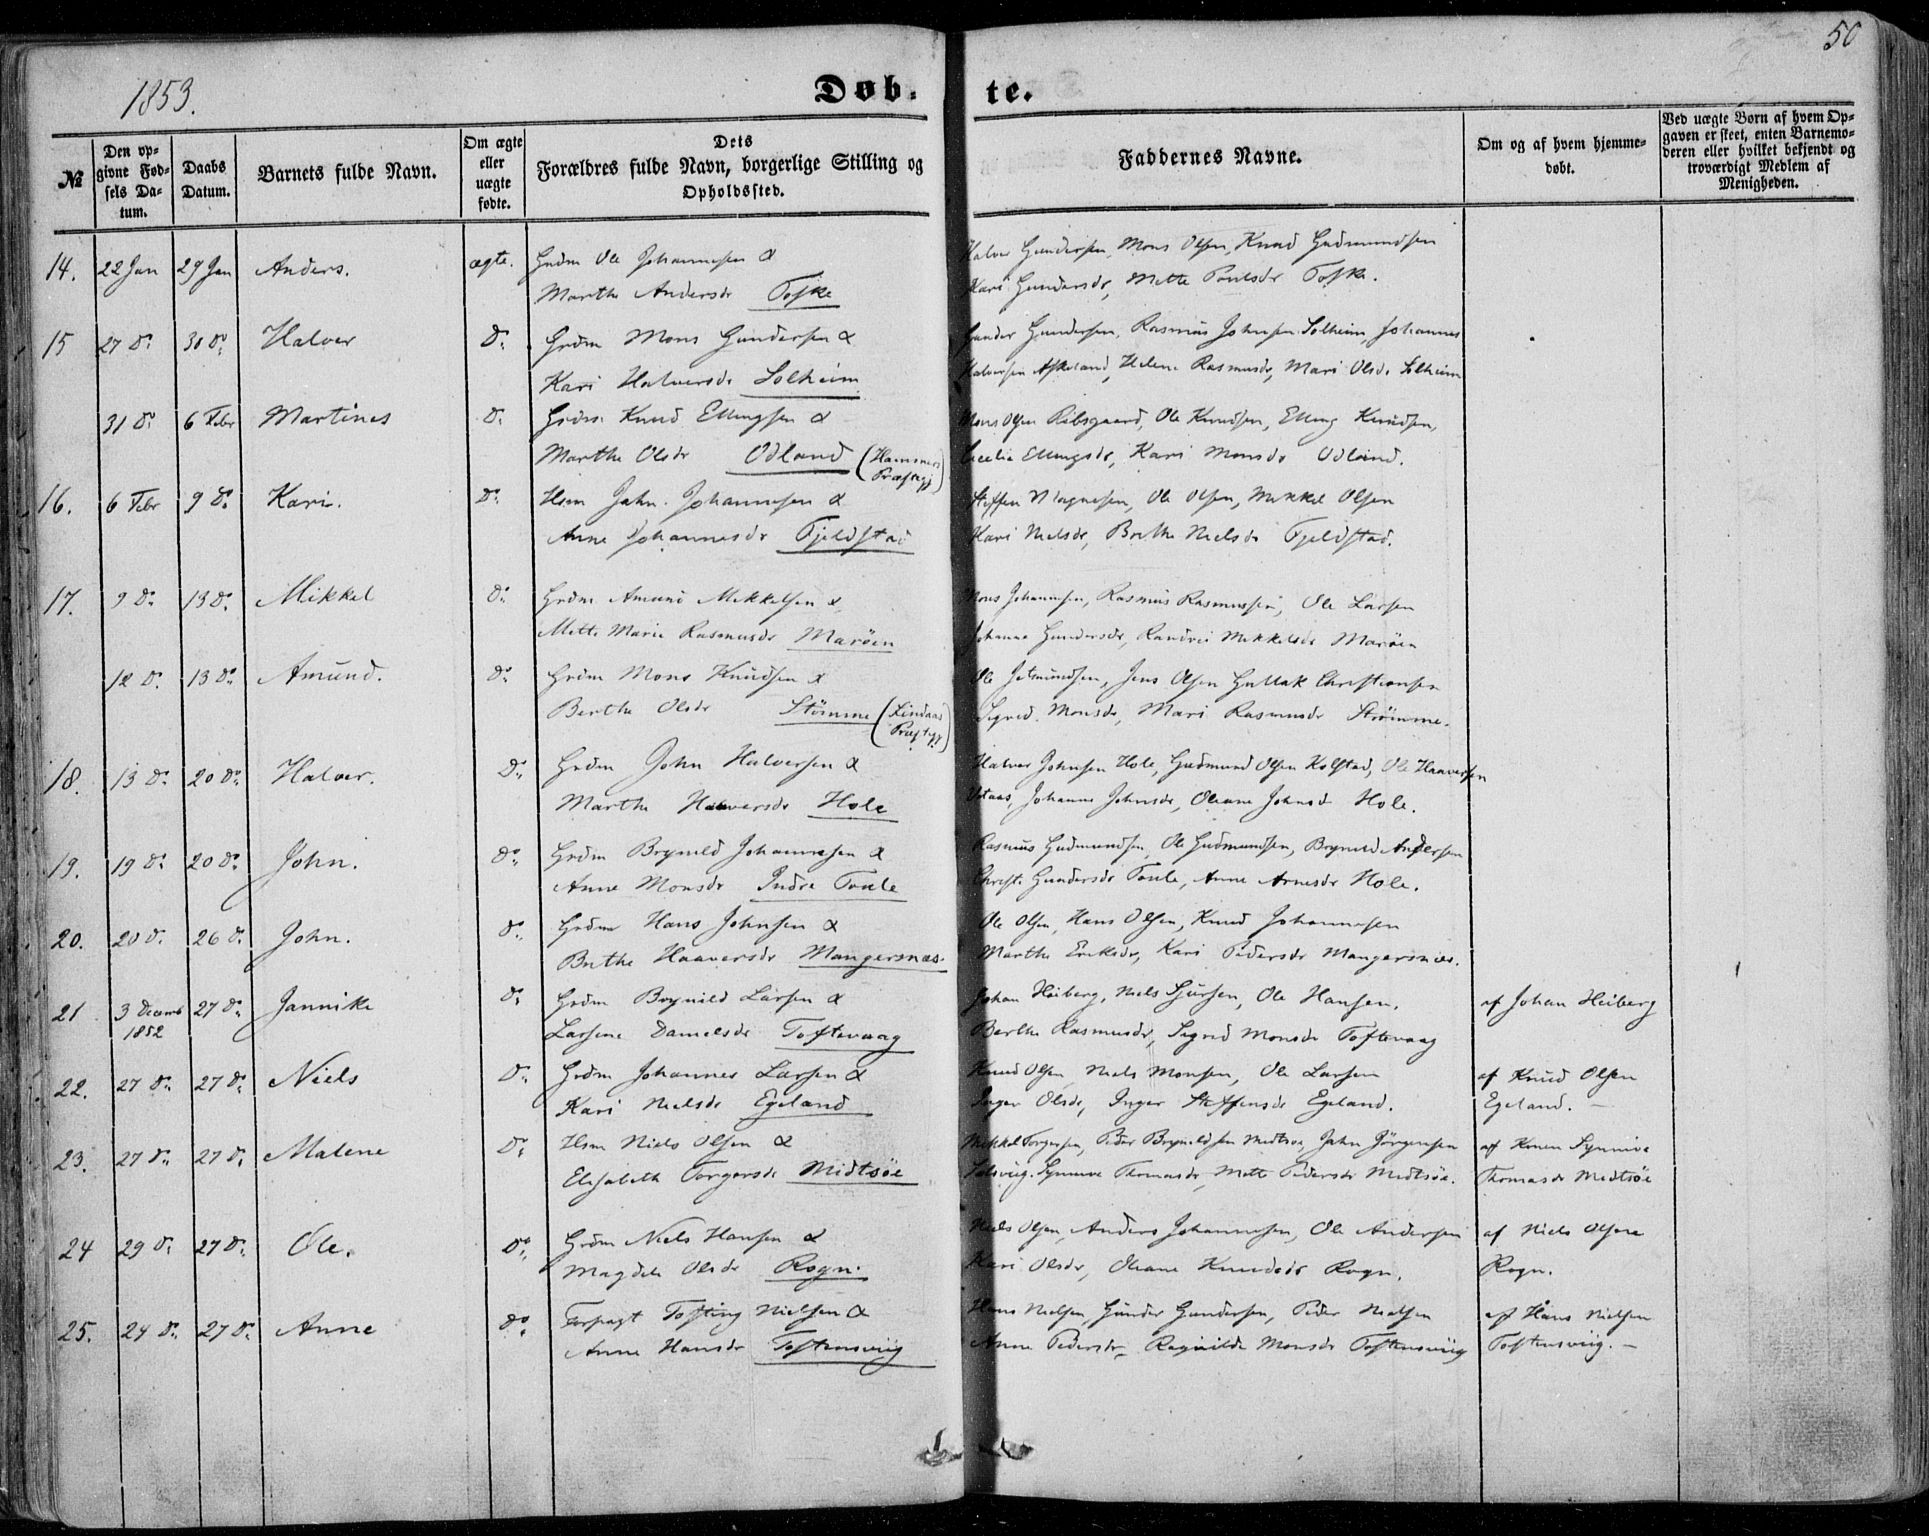 1853.
Døb-
te.
50
№
Den op-
givne Fød-
sels Da-
tum.
Daabs
Datum.
Barnets fulde Navn.
Om ægte
eller
uægte
fødte.
Dets
Forældres fulde Navn, borgerlige Stilling og
Opholdssted.
Faddernes Navne.
Om og af hvem hjemme-
døbt.
Ved uægte Børn af hvem Op-
gaven er skeet, enten Barnemo-
deren eller hvilket bekjendt og
troværdigt Medlem af
Menigheden.
14. 22 Jan 29 Jan Anders. ægte. Grdm Ole Johannesen &
Marthe Andersdr Toske
Halver Gundersen, Mons Olsen, Knud Gudmundsen
Kari Gundersdr, Mette Poulsdr Toske.
15 27 do 30 do Halver do Grdm Mons Gundersen &
Kari Halversdr Solheim
Gunder Gundersen, Rasmus Johnsen Solheim, Johannes
Halversen Askeland, Helene Rasmusdr, Mari Olsdr Solheim
31 do 6 Febr Martines do Grdm Knud Ellingsen &
Marthe Olsdr Odland (Hammers
Præstegj)
Mons Olsen Ribsgaard, Ole Knudsen, Elling Knudsen,
Cecelia Ellingsdr, Kari Monsdr Odland.
16. 6 Febr 9 do Kari. do Hsm Jahn Johannesen &
Anne Johannesdr Fjeldstad
Steffen Magnesen, Ole Olsen, Mikkel Olsen
Kari Nielsdr, Berthe Nielsdr Fjeldstad.
17. 9 do 13 do Mikkel do Grdm Amund Mikkelsen &
Mette Marie Rasmusdr Marøen
Mons Johannesen, Rasmus Rasmussen, Ole Larsen
Johanne Gundersdr, Randvei Mikkelsdr Marøen
12 do 13 do Amund. do Grdm Mons Knudsen &
Berthe Olsdr Stømme (Lindaas
Præstegj)
Ole Jetmundsen, Jens Olsen Hallak Christiansen
Sigrid Monsdr, Mari Rasmusdr Strømme.
18. 13 do 20 do Halver. do Grdm John Halversen &
Marthe Haaversdr Hole
Halver Johnsen Hole, Gudmund Olsen Kolstad, Ole Haaversen
Johanne Johnsdr, Oleane Johnsdr Hole.
19. 19 do 20 do John. do Grdm Brynild Johannesen &
Anne Monsdr Indre Toule
Rasmus Gudmundsen, Ole Gudmundsen, Brynild Andersen
Christi Gundersdr Toule, Anne Arnesdr Hole.
20. 20 do 26 do John. do Grdm Hans Johnsen &
Berthe Haaversdr Mangersnæs
Ole Olsen, Hans Olsen, Knud Johannesen
Marthe Eriksdr, Kari Pedersdr Mangersnæs.
21 3 Decemb 27 do Jannike do Grdm Brynild Larsen &
1852 Larsine Danielsdr Toftevaag
Johan Heiberg, Niels Sjursen, Ole Hansen,
Berthe Rasmusdr, Sigrid Monsdr Toftevaag
af Johan Heiberg
22. 27 do 27 do Niels do Grdm Johannes Larsen &
Kari Nielsdr Egeland
Knud Olsen Niels Monsen, Ole Larsen
Inger Olsdr, Inger Steffensdr Egeland.
af Knud Olsen
Egeland. —
23. 27 do 27 do Malene do Hsm Niels Olsen &
Elisabeth Torgersdr Midtsøe
Mikkel Torgersen, Peder Brynildsen Midtsøe, Jahn Jørgensen
Solsviig, Synneve Thomasdr, Mette Pedersdr Midtsøe.
af Konen Synnive
Thomasdr Midtsøe
24 29 do 27 do Ole. do Grdm Niels Hansen &
Magdele Olsdr Rogn.
Niels Olsen, Anders Johannesen, Ole Andersen
Kari Olsdr, Oleane Knudsdr Rogn.
af Niels Olsen
Rogn.
25. 24 do 27 do Anne do Forpagt Tosting Nielsen &
Anne Hansdr Tostensviig
Hans Nielsen, Gunder Gundersen, Peder Nielsen
Anne Pedersdr, Ragnilde Monsdr Tostensviig
af Hans Nielsen
Tostensviig. —